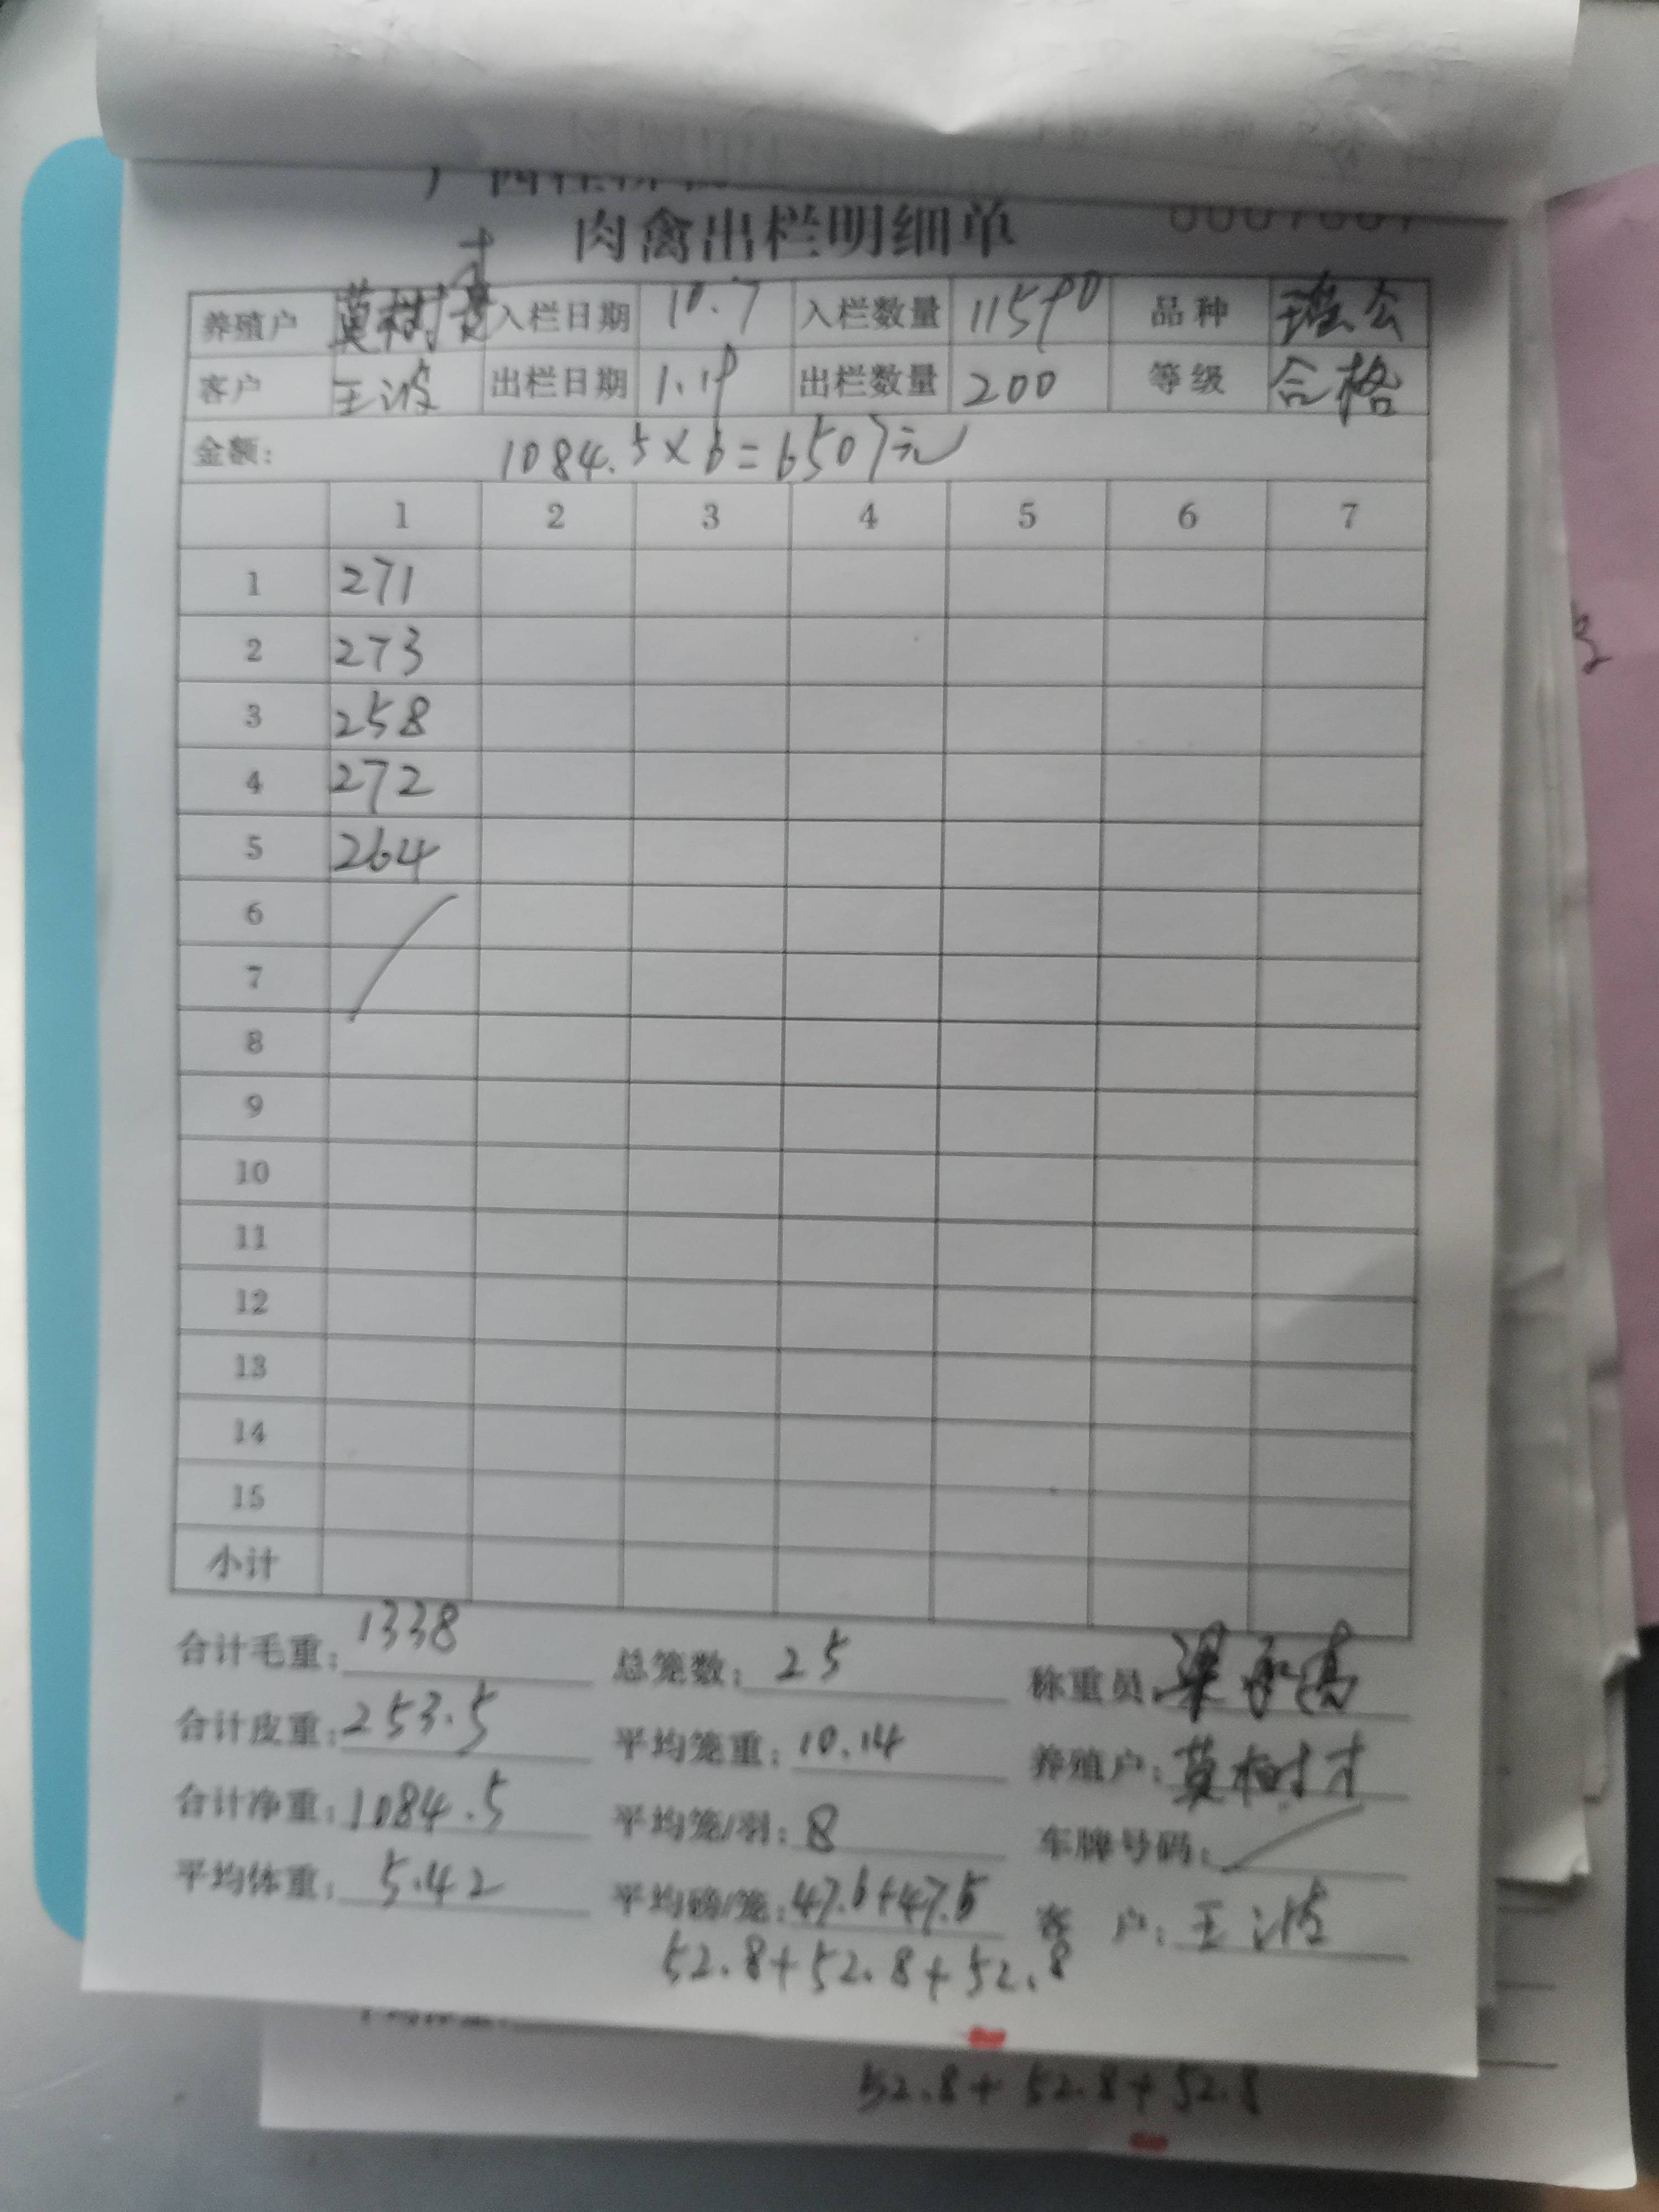 肉禽出栏明细单
才
养殖户 莫树 入栏日期 10.7 入栏数量 11590 品种 瑶公
客户 王波 出栏日期 1.19 出栏数量 200 等级 合格
金额: 1084.5×6=6507元
1 2 3 4 5 6 7
1 271
2 273
3 258
4 272
5 264
6
7
8
9
10
11
12
13
14
15
小计
合计毛重: 1338 总笼数: 25 称重员: 梁
合计皮重: 253.5 平均笼重: 10.14 养殖户: 莫树才
合计净重: 1084.5 平均笼/羽: 8 车牌号码:
平均体重: 5.42 平均磅/笼: 47.6+47.5 客 户: 王波
52.8+52.8+52.8
52.8+52.8+52.8